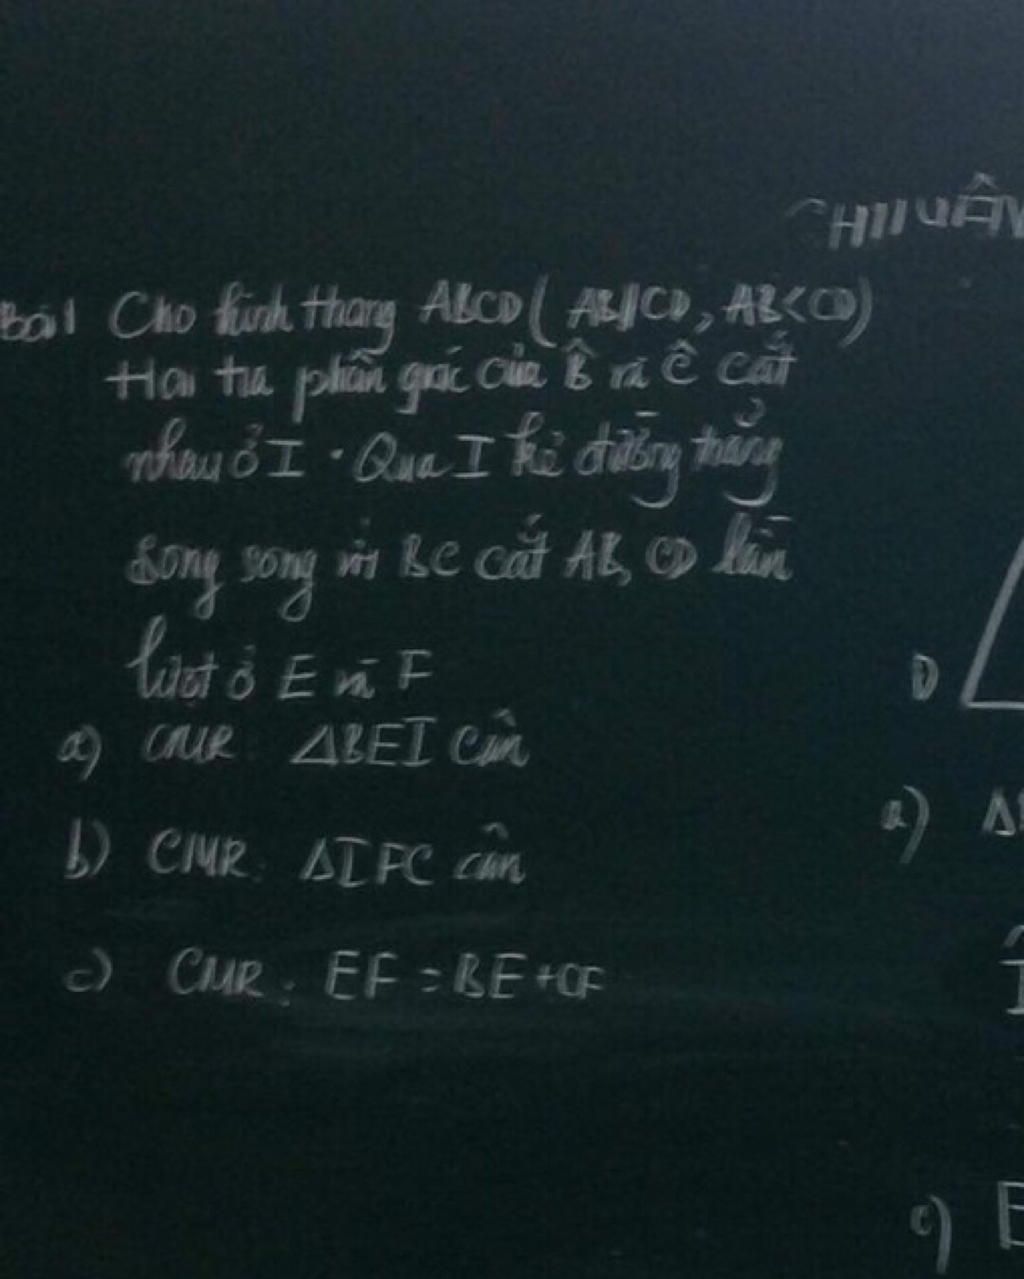 Bài 1 Cho hình thang ABCD ( AB//CD, AB<CD)
Hai tia phân giác của B̂ và Ĉ cắt
nhau ở I . Qua I kẻ đường thẳng
song song với BC cắt AB, CD lần
lượt ở E và F
a) CMR ΔBEI cân
b) CMR: ΔIFC cân
c) CMR: EF = BE + CF
D
a) Δ
c) E